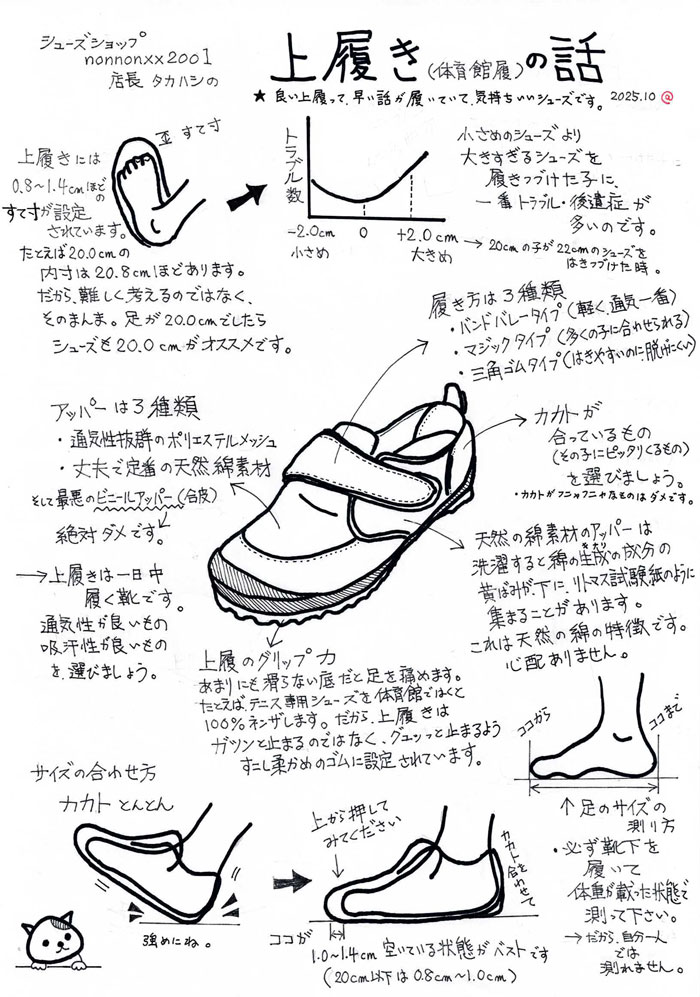 シューズショップ
nonnonxx2001
店長 タカハシの
上履き(体育館履)の話
★ 良い上履って、早い話が履いていて、気持ちいいシューズです。 2025.10
上履きには
0.8〜1.4cmほど
の
すて寸が設定
されています。
たとえば20.0cmの
内寸は20.8cmほどあります。
だから、難しく考えるのではなく、
そのまんま。足が20.0cmでしたら
シューズも20.0cmがオススメです。
すて寸
トラブル数
-2.0cm 0 +2.0cm
小さめ 大きめ
小さめのシューズより
大きすぎるシューズを
履きつづけた子に、
一番トラブル・後遺症が
多いのです。
→ 20cmの子が22cmのシューズを
はきつづけた時。
履き方は3種類
・バンドバレータイプ(軽く、通気一番)
・マジックタイプ(多くの子に合わせられる)
・三角ゴムタイプ(はきやすいのに、脱げにくい)
アッパーは3種類
・通気性抜群のポリエステルメッシュ
・丈夫で定番の天然綿素材
そして最悪のビニールアッパー(合皮)
絶対ダメです。
→上履きは一日中
履く靴です。
通気性が良いもの
吸汗性が良いもの
を選びましょう。
カカトが
合っているもの
(その子にピッタリくるもの)
を選びましょう。
・カカトがフニャフニャなものはダメです。
天然の綿素材のアッパーは
洗濯すると綿の生成の成分の
きなり
黄ばみが、下に、リトマス試験紙のように
集まることがあります。
これは天然の綿の特徴です。
心配ありません。
上履のグリップ力
あまりにも滑らない底だと足を痛めます。
たとえば、テニス専用シューズを体育館ではくと
100%ネンザします。だから、上履きは
ガツンと止まるのではなく、グユッと止まるよう
すこし柔かめのゴムに設定されています。
ココから ココまで
↑足のサイズの
測り方
・必ず靴下を
履いて
体重が載った状態で
測って下さい。
→だから、自分一人
では
測れません。
サイズの合わせ方
カカトとんとん
強めにね。
上から押して
みてください
カカトを合わせて
ココが
1.0〜1.4cm 空いている状態がベストです
(20cm以下は0.8cm〜1.0cm)